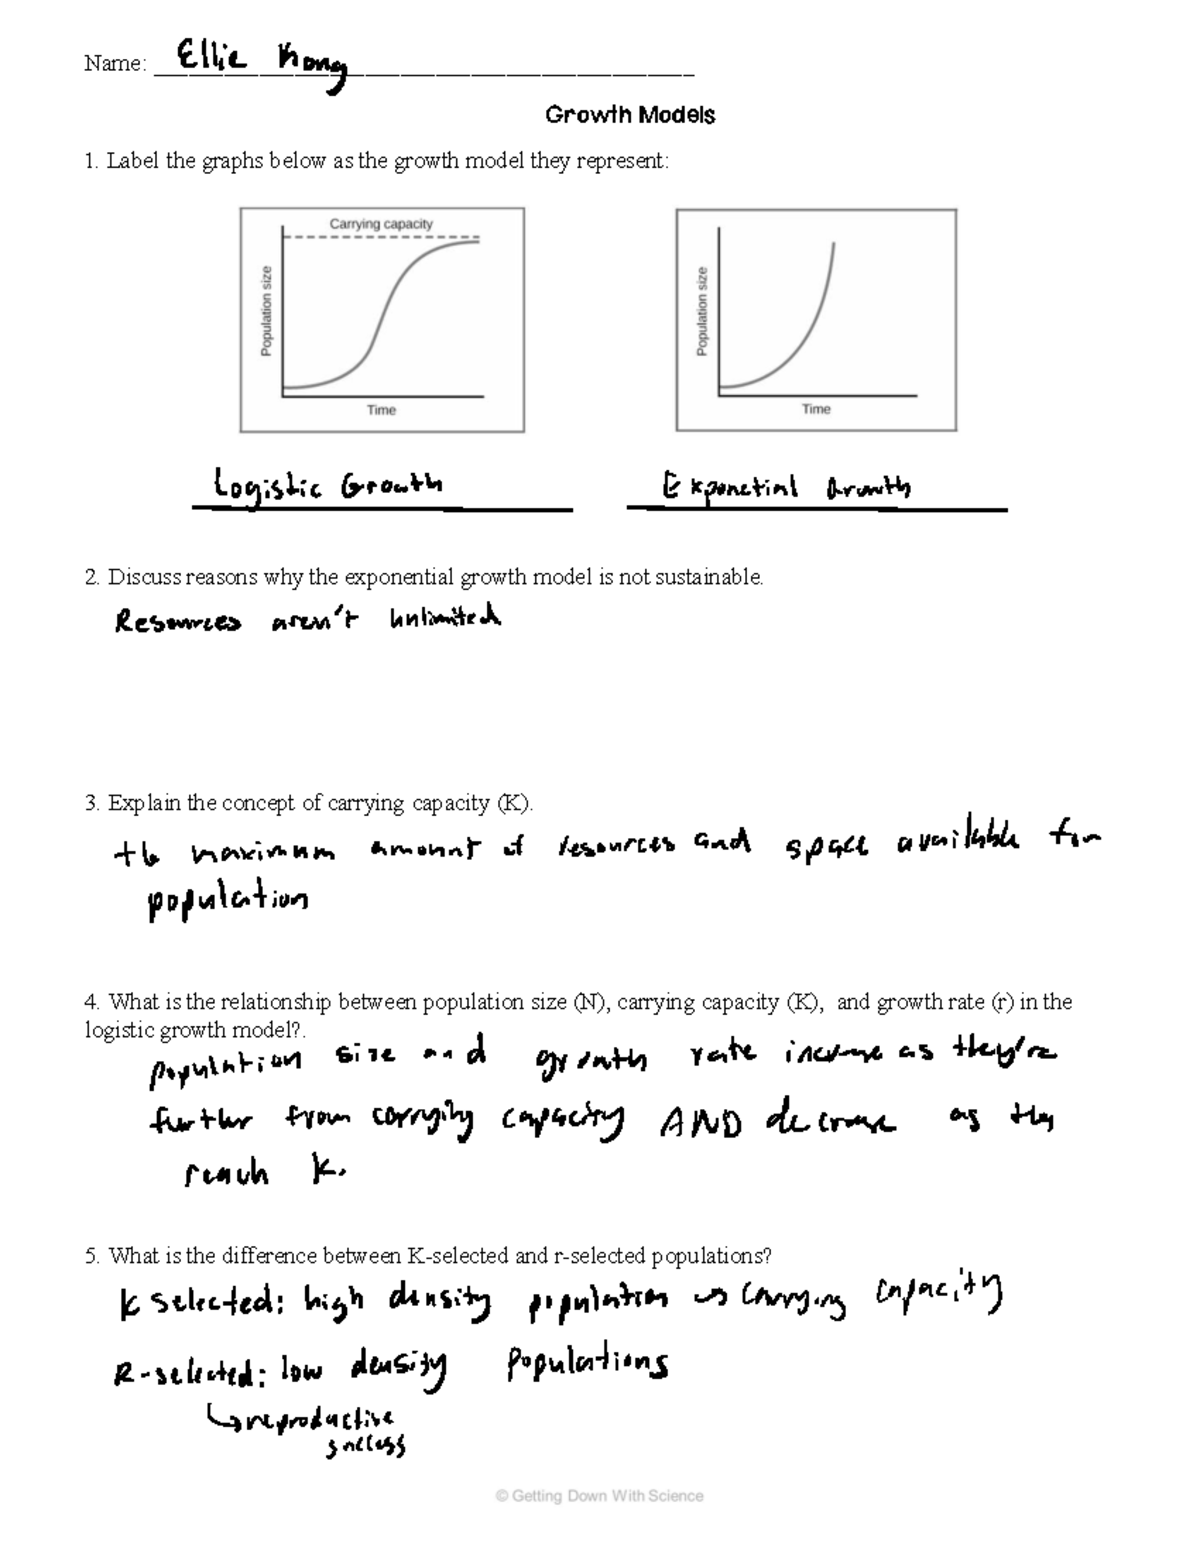 Name: Ellie Kong
Growth Models
1. Label the graphs below as the growth model they represent:
Carrying capacity
Population size
Time
Population size
Time
Logistic Growth
Exponetial Growth
2. Discuss reasons why the exponential growth model is not sustainable.
Resources aren't unlimited
3. Explain the concept of carrying capacity (K).
the maximum amount of resources and space available for
population
4. What is the relationship between population size (N), carrying capacity (K), and growth rate (r) in the
logistic growth model?.
population size and growth rate increase as they're
further from carrying capacity AND decrease as they
reach K.
5. What is the difference between K-selected and r-selected populations?
K selected: high density population carrying capacity
R-selected: low density populations
↳ reproductive
success
© Getting Down With Science